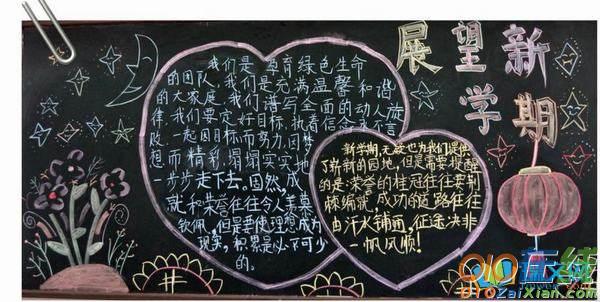 展望新
学期
我们是孕育绿色生命
的团队,我们是充满温馨和谐
的大家庭,我们谱写全面的动人旋
律,我们要定好目标,执着信念,永不言
败,一起因目标而努力,因梦
想而精彩,塌塌实实地
一步步走下去。固然,成
就和荣誉往往令人羡慕
钦佩,但是要使理想成为
现实,积累是必不可少
的。
新学期,无疑也为我们提供
了崭新的园地,但是需要提醒
的是:荣誉的桂冠往往要荆
棘编就,成功的道路往往
由汗水铺通,征途决非
一帆风顺!
QQ在线
QTOZaiXian.com